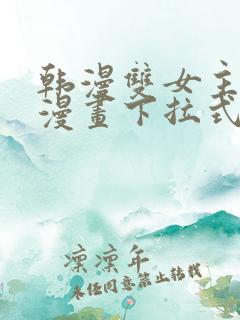 韩漫雙女主
漫畫下拉式
凛凛年
未经同意禁止转载